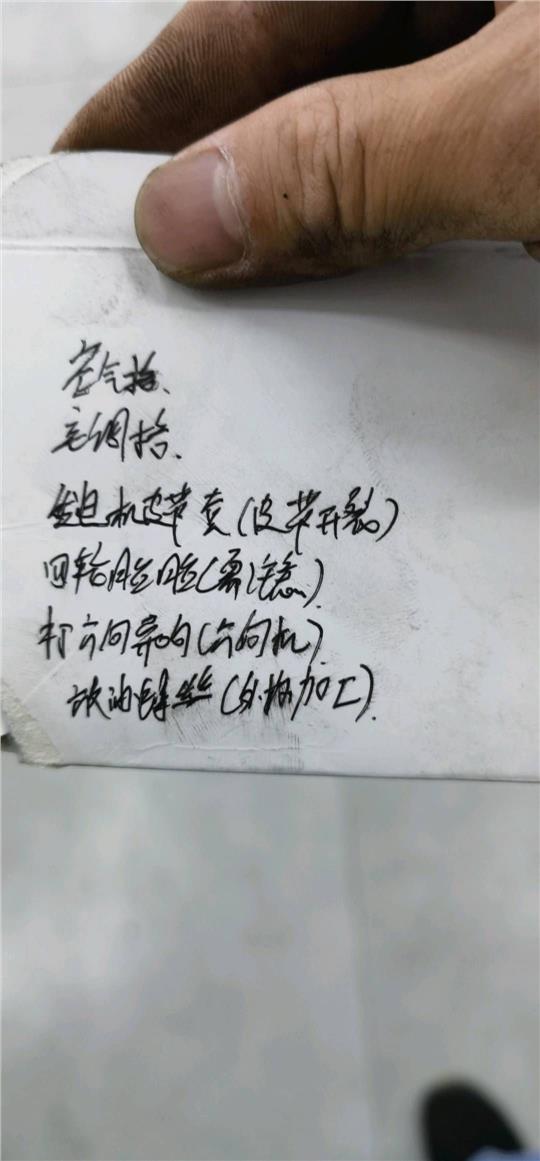 空气格、
空调格、
发电机皮带壹(皮带开裂)
四轮
打方向异响(方向机)
放油螺丝(外协加工).